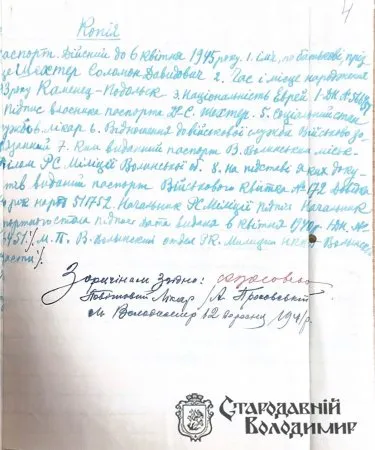 Копія
4
аспорт. Дійсний до 6 квітня 1945 року. 1. Імя, по батькові, пріз
ще Шехтер Соломон Давидович 2. Час і місце народження
року Каменец-Подольск 3. Національність Еврей
Підпис власника паспорта С. Шехтер. 5. Соціальний стан
службов. лікар 6. Відношення до військової служби Військово зо
язаний 7. Ким виданий паспорт В. Волинським міськ
ілом РС Міліції Волинської об. 8. на підставі яких доку
тів виданий паспорт Військового квитка № 172
карт 51752. Начальник РС Міліції підпис Начальник
портного стола підпис дата видачі 6 квітня 1940р.
М. П. В-Волинський отдел РК. Милиции НКВД Волынск
области
З оригіналом згідно:
Повітовий Лікар /А. Проховський/
м. Володимир 12 вересня 1941 р.
Стародавній
Володимир